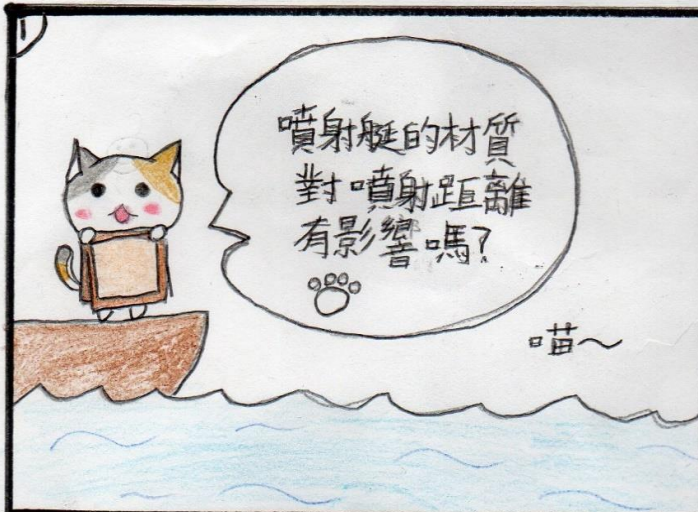 1
噴射艇的材質
對噴射距離
有影響嗎?
喵~